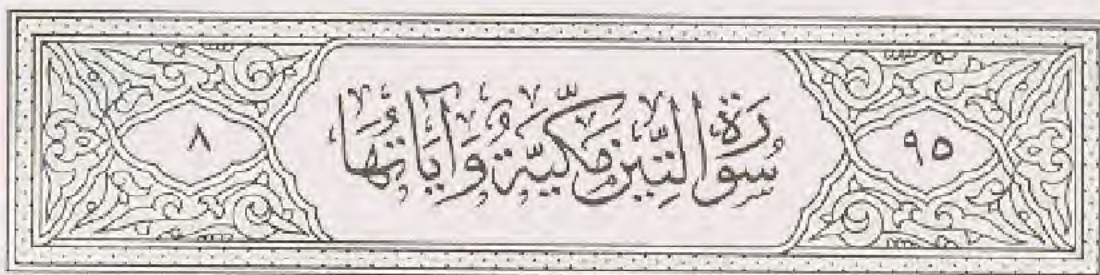 ٩٥ سُورَة التِّين مَكِّيَّة وَآيَاتُهَا ٨